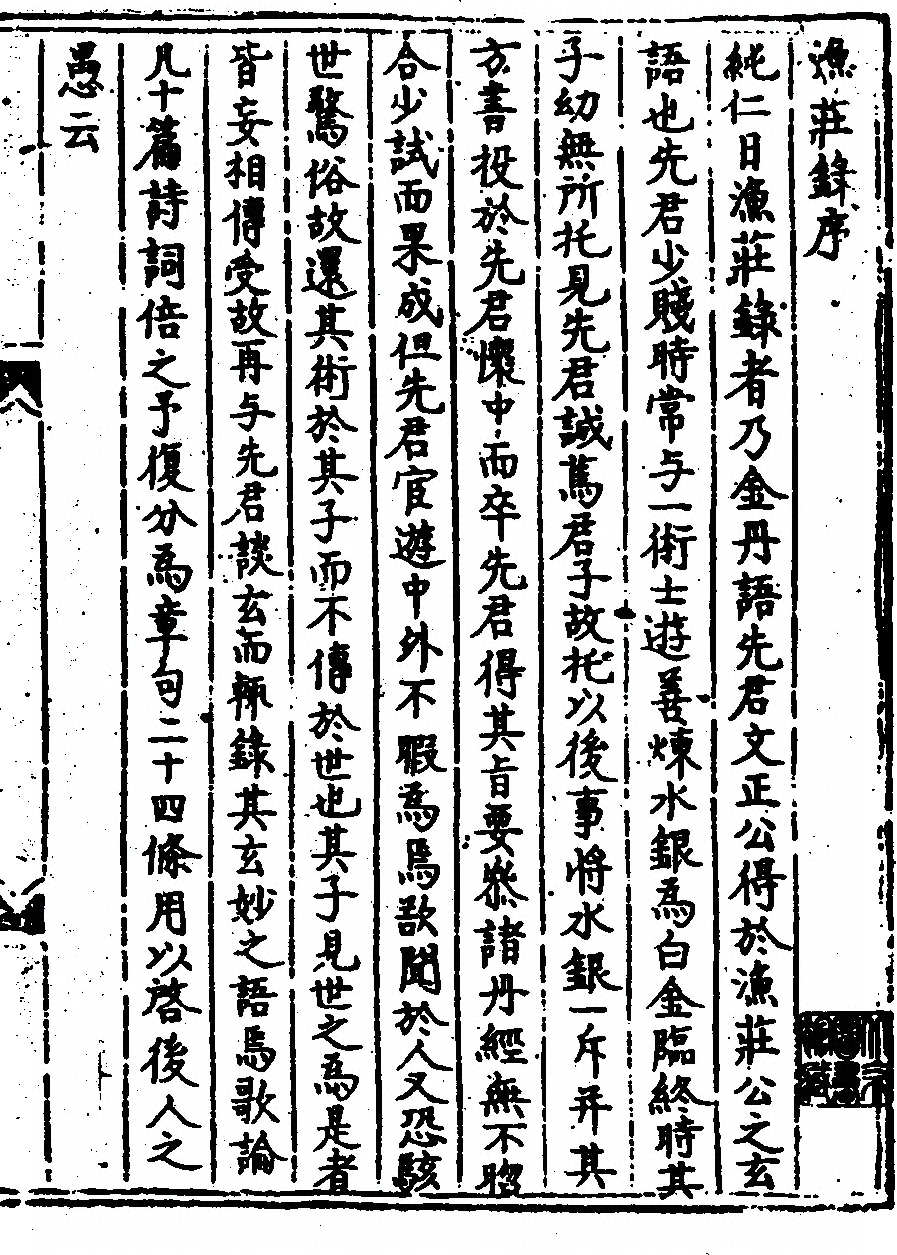 漁莊錄序
純仁曰漁莊錄者乃金丹語先君文正公得於漁莊公之玄
語也先君少賤時常与一術士遊善煉水銀為白金臨終時其
子幼無所托見先君誠篤君子故托以後事將水銀一斤并其
方書投於先君懷中而卒先君得其旨要叅諸丹經無不脗
合少試而果成但先君宦遊中外不暇為焉欲聞於人又恐駭
世驚俗故還其術於其子而不傳於世也其子見世之為是者
皆妄相傳受故再与先君談玄而輒錄其玄妙之語焉歌論
凡十篇詩詞倍之予復分為章句二十四條用以啓後人之
愚云